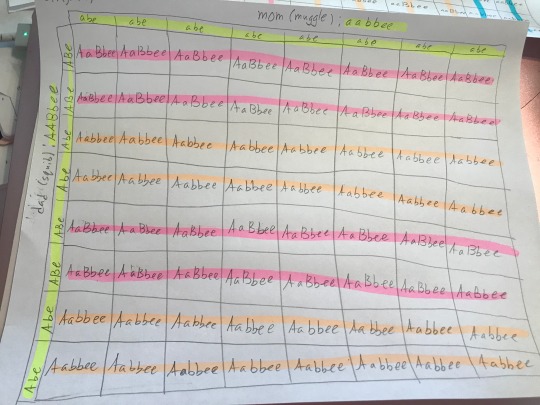 mom (muggle): aabbee
abe abe abe abe abe abe abe abe
dad (squib): AABbee
ABe AaBbee AaBbee AaBbee AaBbee AaBbee AaBbee AaBbee AaBbee
ABe AaBbee AaBbee AaBbee AaBbee AaBbee AaBbee AaBbee AaBbee
Abe Aabbee Aabbee Aabbee Aabbee Aabbee Aabbee Aabbee Aabbee
Abe Aabbee Aabbee Aabbee Aabbee Aabbee Aabbee Aabbee Aabbee
ABe AaBbee AaBbee AaBbee AaBbee AaBbee AaBbee AaBbee AaBbee
ABe AaBbee AaBbee AaBbee AaBbee AaBbee AaBbee AaBbee AaBbee
Abe Aabbee Aabbee Aabbee Aabbee Aabbee Aabbee Aabbee Aabbee
Abe Aabbee Aabbee Aabbee Aabbee Aabbee Aabbee Aabbee Aabbee